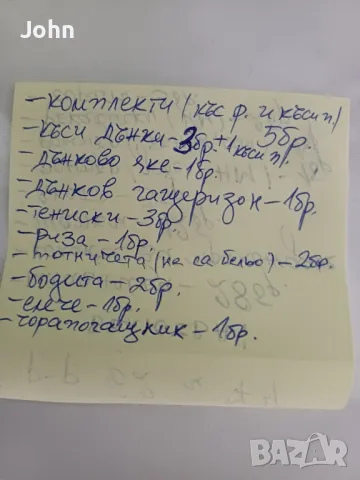 John
- комплекти (къс р. и къси п.)
5бр.
- къси дънки - 3бр. + 1 къси п.
- дънково яке - 1бр.
- дънков гащеризон - 1бр.
- тениски - 3бр.
- риза - 1бр.
- потничета (не са бельо) - 2бр.
- бодита - 2бр.
- елече - 1бр.
- чорапогащник - 1бр.
BAZAR
bg